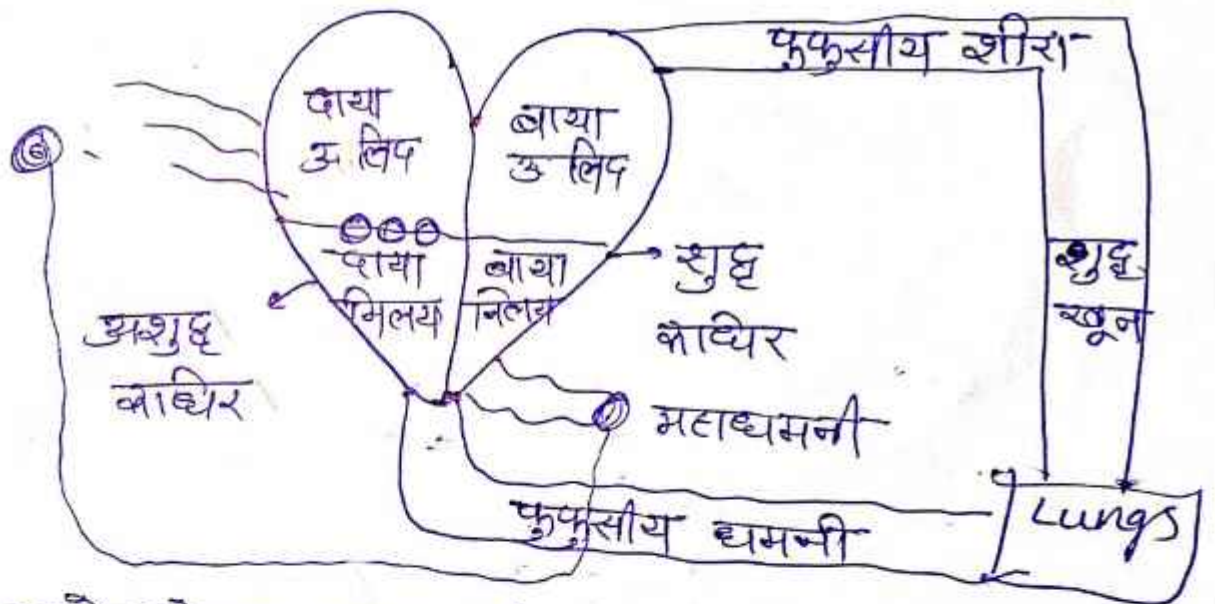 फुफुसीय शीरा
दाया
अलिद
बाया
अलिद
दाया
मिलय
बाया
निलय
शुद्ध
रूधिर
अशुद्ध
रूधिर
शुद्ध
खून
महाधमनी
फुफुसीय धमनी
Lungs